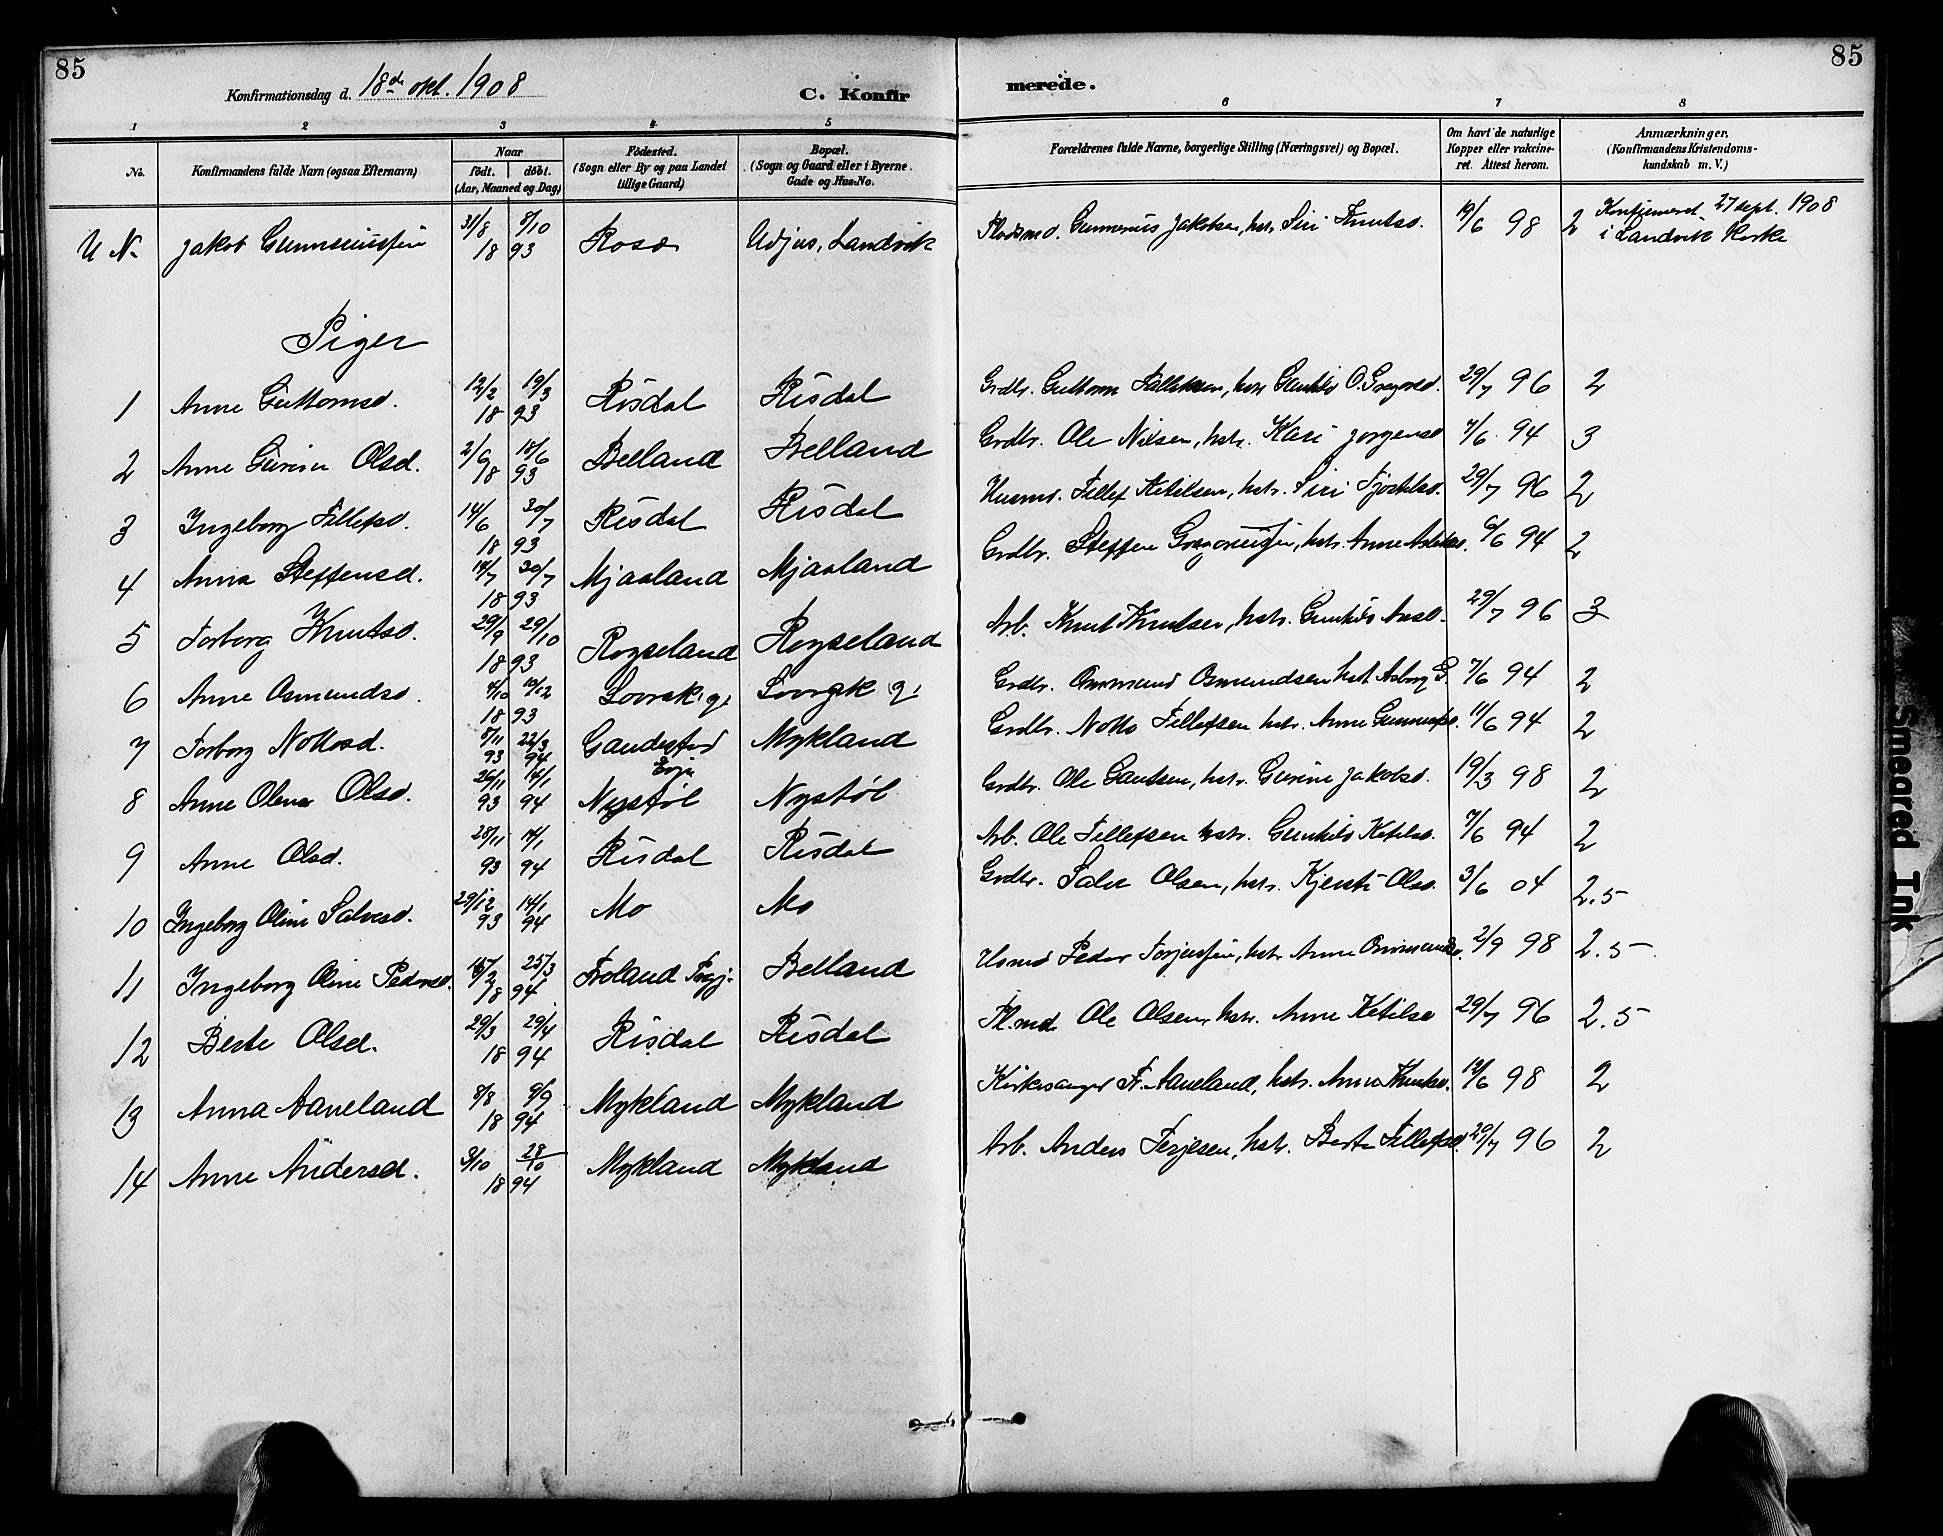 85
85
Konfirmationsdag d. 18de okt. 1908
C. Konfir
merede.
1 2 3 4 5 6 7 8
No.
Konfirmandens fulde Navn (ogsaa Efternavn)
Naar
født. døbt.
(Aar, Maaned og Dag)
Fødested.
(Sogn eller By og paa Landet
tillige Gaard)
Bopæl.
(Sogn og Gaard eller i Byerne
Gade og Hus-No.
Forældrenes fulde Navne, borgerlige Stilling (Næringsvei) og Bopæl.
Om havt de naturlige
Kopper eller vakcine-
ret. Attest herom.
Anmærkninger.
(Konfirmandens Kristendoms-
kundskab m. V.)
U N. Jakob Gunneriussen 31/8 8/10 18 93 Rosæ Landvik Pladsmd. Gunnerius Jakobsen, hstr. Siri Knutsd. 19/6 98 2 Konfirmeret 27 sept. 1908
i Landvik Kirke
Piger
1 Anne Guttormsd. 12/2 19/3 18 93 Risdal Risdal Grdbr. Guttorm Tallaksen, hstr Gunhild O. Gregersd. 29/7 96 2
2 Anne Gurine Olsd. 2/6 18/6 18 93 Belland Belland Grdbr. Ole Nilsen, hstr. Kari Jørgensd 7/6 94 3
3 Ingeborg Tellefsd. 14/6 30/7 18 93 Risdal Risdal Husmd. Tellef Ketilsen, hstr. Siri Tjøstelsd. 29/7 96 2
4 Anna Steffensd. 14/7 30/7 18 93 Mjaaland Mjaaland Grdbr. Steffen Gregoriussen, hstr. Anne 6/6 94 2
5 Torborg Knutsd. 29/9 29/10 18 93 Røyseland Røyseland Arb. Knut Knutsen, hstr. Gunhild Aasd. 29/7 96 3
6 Anne Osmundsd. 4/10 10/12 18 93 Grdbr. Ommund Osmundsen hstr Asborg G. 7/6 94 2
7 Torborg Nottosd. 8/11 22/3 93 94 Evje Mykland Grdbr. Notto Tellefsen hstr. Anne Gunnufsd. 11/6 94 2
8 Anne Olena Olsd. 26/11 14/1 93 94 Nystøl Nystøl Grdbr. Ole Gautsen, hstr. Gurine Jakobsd. 19/3 98 2
9 Anne Olsd. 28/11 14/1 93 94 Risdal Risdal Arb. Ole Tellefsen hstr. Gunhild Ketilsd. 7/6 94 2
10 Ingeborg Oline Salvesd. 29/12 14/1 93 94 Mo Mo Grdbr. Salve Olsen, hstr. Kjersti Olsd. 3/6 04 2.5
11 Ingeborg Oline Pedersd. 25/3 18 94 Froland Belland Husmd Peder Torjussen, hstr Anne Ommundsd. 2/9 98 2.5
12 Berte Olsd. 29/3 29/4 18 94 Risdal Risdal Pl.md. Ole Olsen, hstr. Anne Ketilsd 29/7 96 2.5
13 Anna Aaneland 8/8 9/9 18 94 Mykland Mykland Kirkesanger Fr. Aaneland, hstr. Anne Knutsd. 12/6 98 2
14 Anne Andersd. 3/10 28/10 18 94 Mykland Mykland Arb. Anders Terjesen, hstr. Berte Tellefsd. 29/7 96 2
Smeared Ink